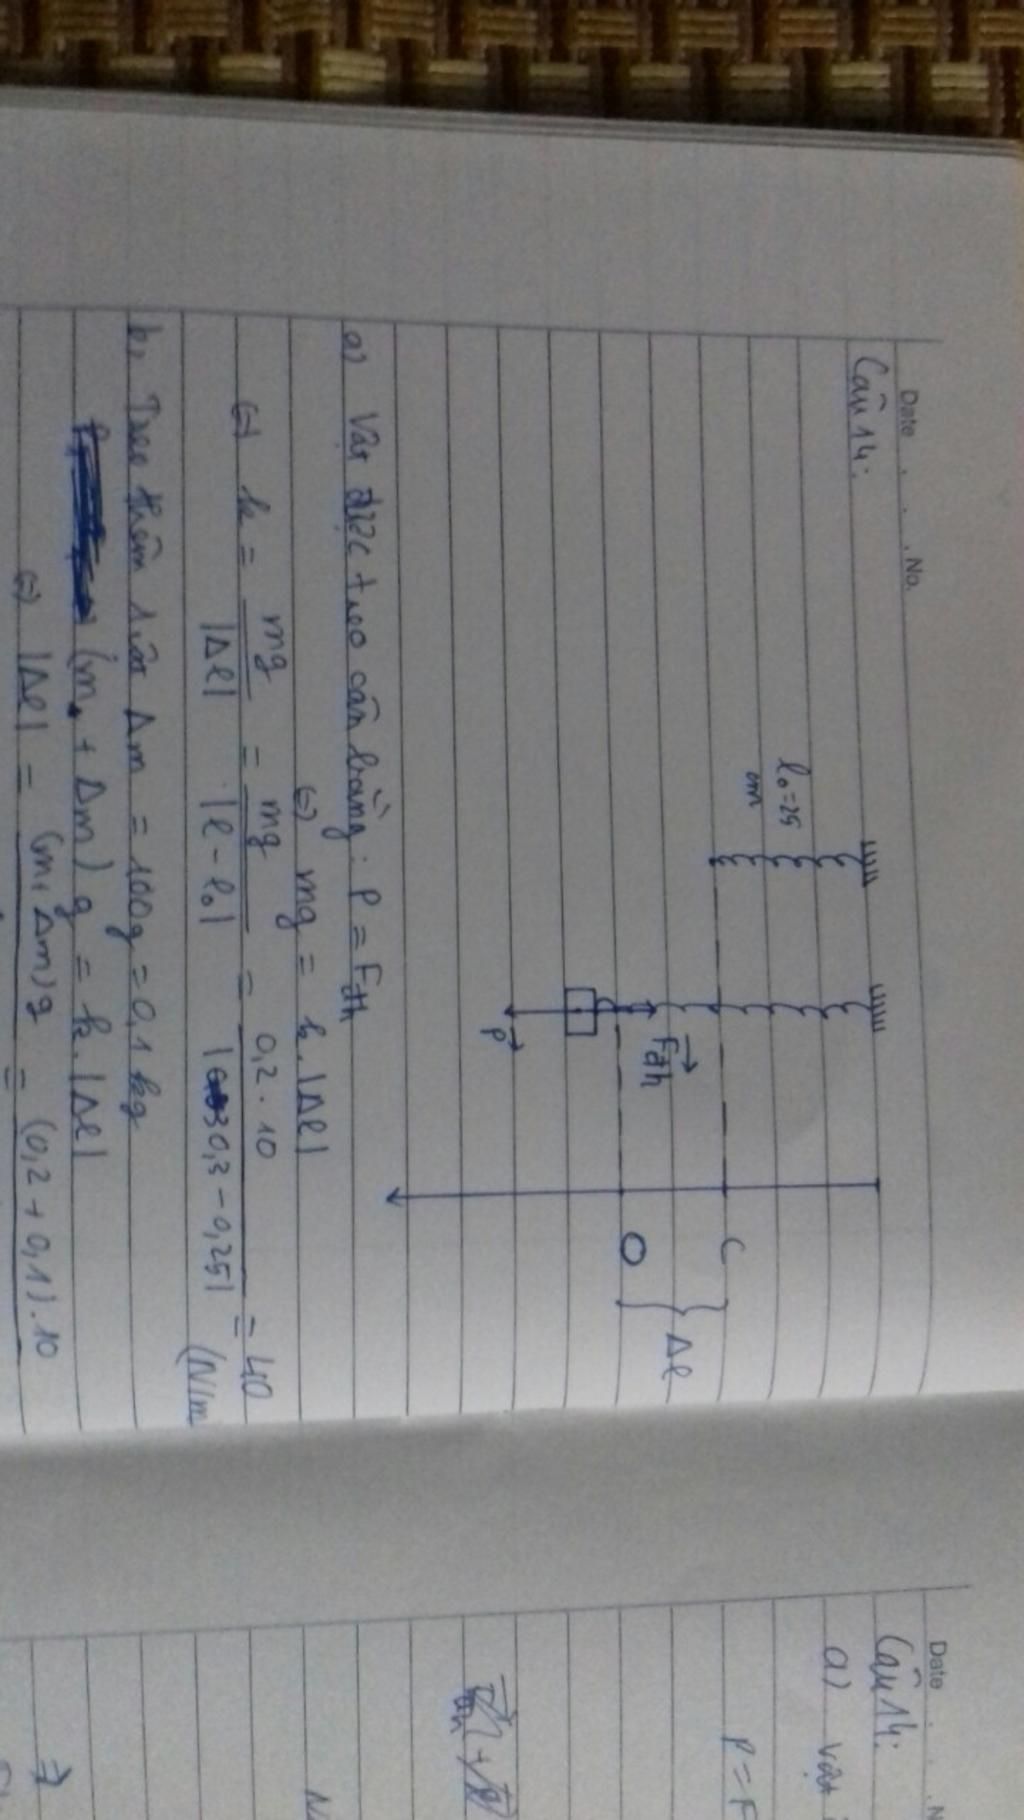 Date . . . No.
Câu 14:
l₀=25
cm
C
Δl
O
Fđh
P
a) Vật được treo cân bằng: P = Fđh
(=) mg = k.|Δl|
(=) k = mg/|Δl| = mg/|l - l₀| = 0,2.10/|0,3 - 0,25| = 40 (N/m
b, Treo thêm Δm = 100g = 0,1 kg
(m + Δm) g = k.|Δl|
(=) |Δl| = (m+Δm)g = (0,2 + 0,1).10
Date
Câu 14:
a) vật
P = F